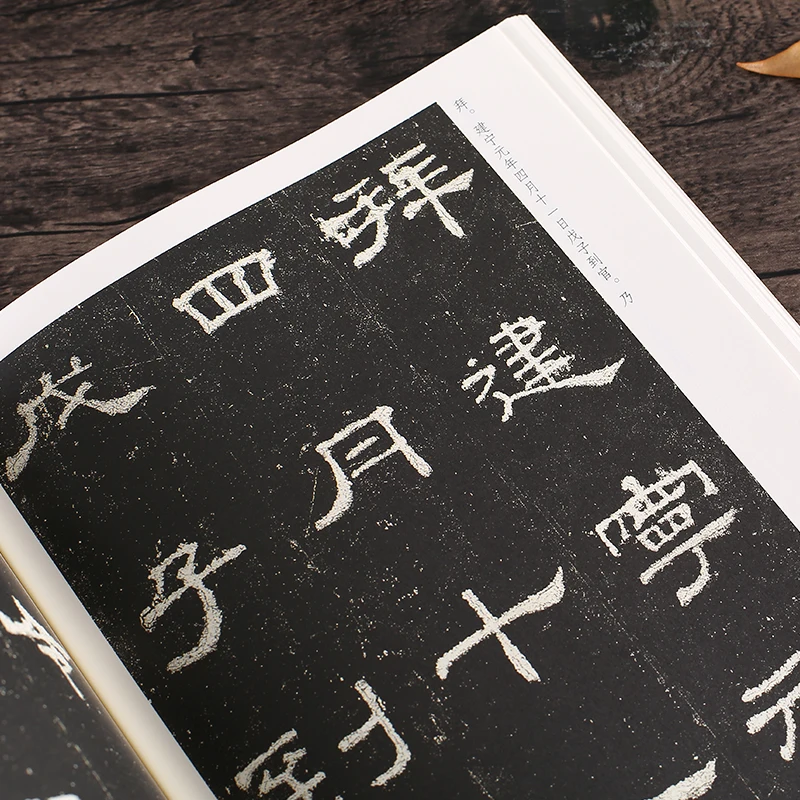 拜。建宁元年四月十一日戊子到官。乃
拜建寧元
四月十一
戊子到